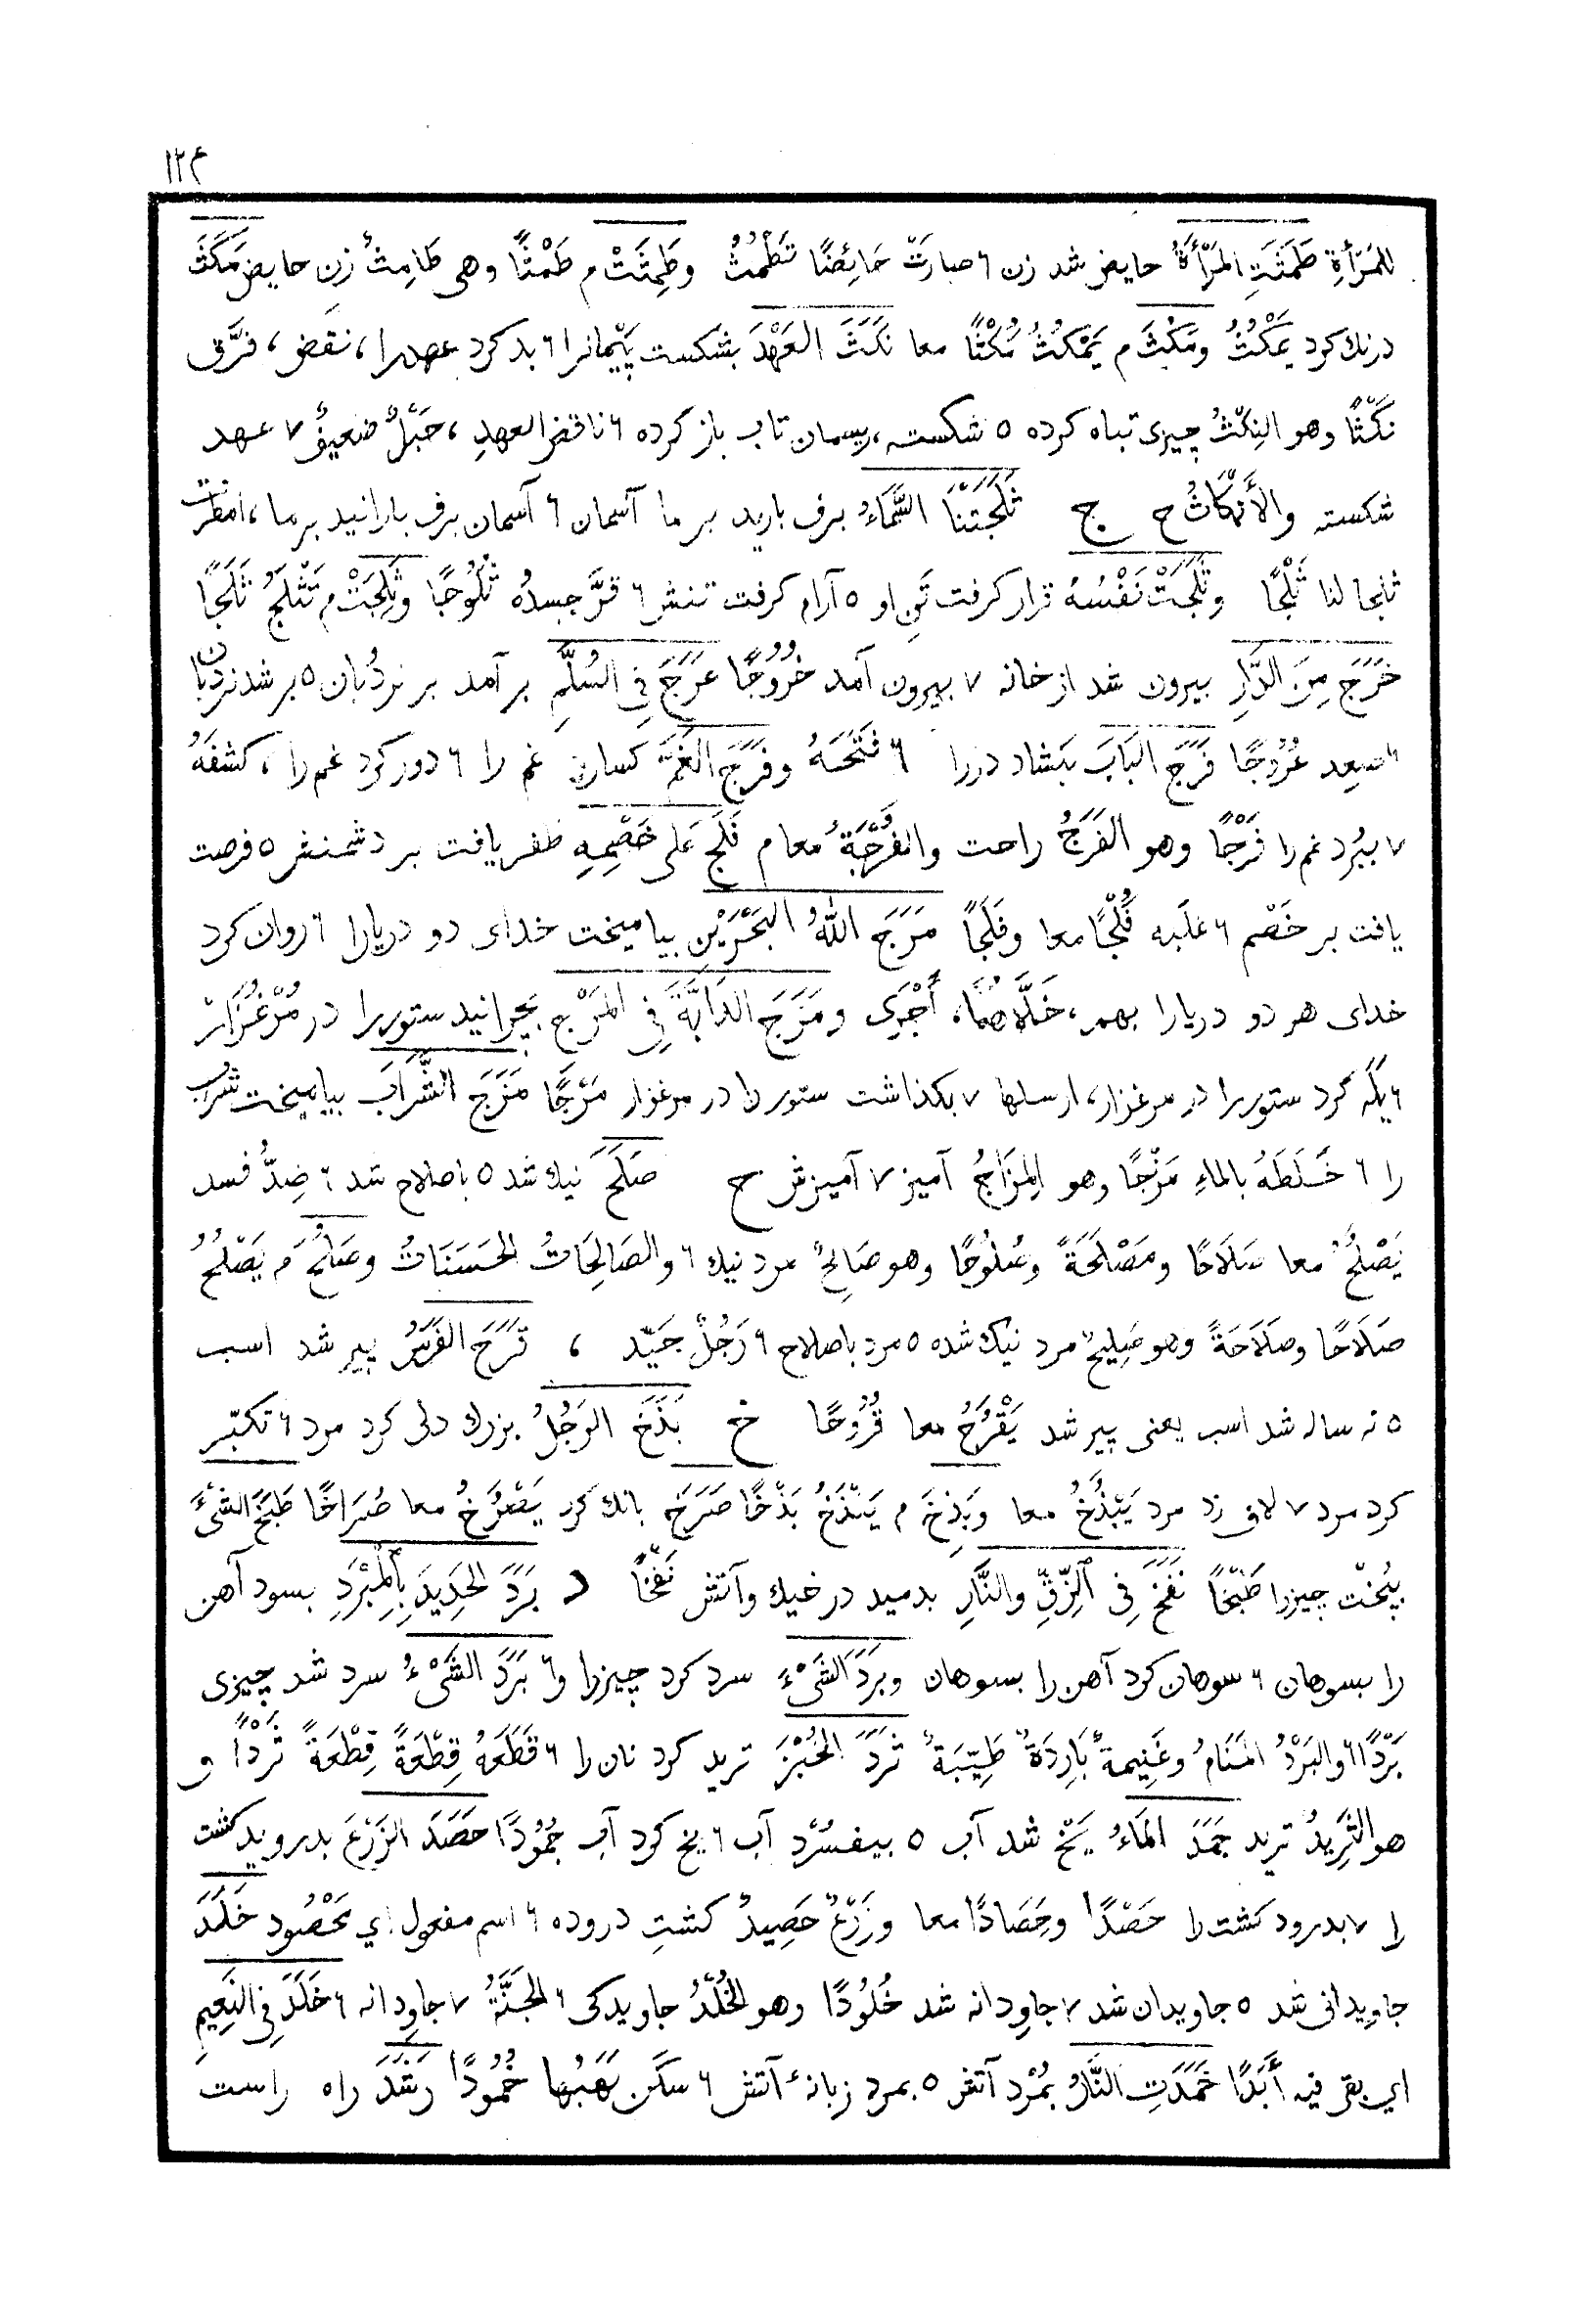 ۱۲۴
للمَرْأةِ طَمَثَتِ المَرْأَةُ حایض شد زن ٦ صارَتْ حَائِضًا تَطْمُثُ وطَمِثَتْ م طَمْثًا وهى طَامِثٌ زنِ حایض مَكَثَ
درنك كرد يَمْكُثُ ومَكُثَ م يَمْكُثُ مُكْثًا معا نَكَثَ العَهْدَ بشكست پَيْمانرا ٦ بد كرد عهدرا، نقض، فرَّق
نَكْثًا وهو النِكْثُ چیزى تباه كرده ٥ شكسته، ریسمان تاب باز كرده ٦ ناقض العهدِ، حَبْلٌ ضعيفٌ ٧ عهد
شكسته والأَنْكَاثُ ح ج ثَلَجَتْنَا السَّمَاءُ برف بارید بر ما آسمان ٦ آسمان برف بارانید بر ما، امطرت
ثلجا لنا ثَلْجًا وثَلَجَتْ نَفْسُهُ قرار كرفت تَنِ او ٥ آرام كرفت تنش ٦ قرَّ جسدُه ثُلُوجًا وثَلِجَتْ م تَثْلَجُ ثَلَجًا
خَرَجَ مِنَ الدَّارِ بیرون شد از خانه ٧ بیرون آمد خُرُوجًا عَرَجَ فِى السُلَّمِ بر آمد بر نردُبان ٥ بر شد نردبان
٦ صعد عُرُوجًا فَرَجَ البَابَ بكشاد دررا ٦ فَتَحَهُ وفَرَجَ الغَمَّ كسارن غم را ٦ دور كرد غم را، كشفَهُ
٧ ببُرد غم را فَرْجًا وهو الفَرَجُ راحت والفُرْجَةُ معا م فَلَجَ عَلى خَصْمِهِ ظفر یافت بر دشمنش ٥ فرصت
یافت بر خَصْم ٦ غلَبه فُلْجًا معا وفَلَجًا مَرَجَ اللهُ البَحْرَيْنِ بیامیخت خداى دو دریارا ٦ روان كرد
خداى هر دو دریارا بهم، خَلَّاهُمَا، أَجْرَى ومَرَجَ الدَابَّةَ فِى المَرْجِ بچرانید ستوررا در مُرْغزَارْ
٦ یله كرد ستوررا در مرغزار، ارسلها ٧ بكذاشت ستور را در مرغزار مَرْجًا مَزَجَ الشَّرَابَ بیامیخت شراب
را ٦ خَلَطَهُ بالماءِ مَزْجًا وهو المِزَاجُ آمیز ٧ آمیزش ح صَلَحَ نیك شد ٥ باصلاح شد ٦ ضِدُّ فسد
يَصْلُحُ معا صَلَاحًا ومَصْلَحَةً وصُلُوحًا وهو صَالِحٌ مرد نیك ٦ والصَالِحَاتُ الحَسَنَاتُ وصَلُحَ م يَصْلُحُ
صَلَاحًا وصَلَاحَةً وهو صَلِيحٌ مرد نیك شده ٥ مرد باصلاح ٦ رَجُلٌ جَيّد ، قَرَحَ الفَرَسُ پیر شد اسب
٥ نه ساله شد اسب یعنى پیر شد يَقْرَحُ معا قُرُوحًا خ بَذَخَ الرَجُلُ بزرك دلى كرد مرد ٦ تكبّر
كرد مرد ٧ لاف زد مرد يَبْذُخُ معا وبَذِخَ م يَبْذَخُ بَذْخًا صَرَخَ بانك كرد يَصْرُخُ معا صُرَاخًا طَبَخَ الشَىْءَ
بپُخت چیزرا طَبْخًا نَفَخَ فِى الزِّقِّ والنَّارِ بدمید در خیك وآتش نَفْخًا د بَرَدَ الحَدِيدَ بِالمِبْرَدِ بسود آهن
را بسوهان ٦ سوهان كرد آهن را بسوهان وبَرَدَ الشَىْءَ سرد كرد چیزرا و٦ بَرَدَ الشَىْءُ سرد شد چیزى
بَرْدًا ٦ والبَرْدُ المَنَامُ وغَنِيمةٌ بَارِدَةٌ طَيِّبَةٌ ثَرَدَ الخُبْزَ ترید كرد نان را ٦ قَطَعَهُ قِطْعَةً قِطْعَةً ثَرْدًا و
هو الثَرِيدُ ترید جَمَدَ المَاءُ یَخْ شد آب ٥ بیفسُرْد آب ٦ یخ كرد آب جُمُودًا حَصَدَ الزَرْعَ بدروید كشت
را ٧ بدرود كشت را حَصْدًا وحَصَادًا معا وزَرْعٌ حَصِيدٌ كشتِ دروده ٦ اسم مفعول اي مَحْصُود خَلَدَ
جاویدانى شد ٥ جاویدان شد ٧ جاوِدانه شد خُلُودًا وهو الخُلْدُ جاویدكى ٦ الجَنَّةُ ٧ جاوِدانه ٦ خَلَدَ فِى النَعِيمِ
اي بقي فيه أَبَدًا خَمَدَتِ النَّارُ بمُرْد آتش ٥ بمرد زبانهٔ آتش ٦ سكَن لَهَبُها خُمُودًا رَشَدَ راه راست